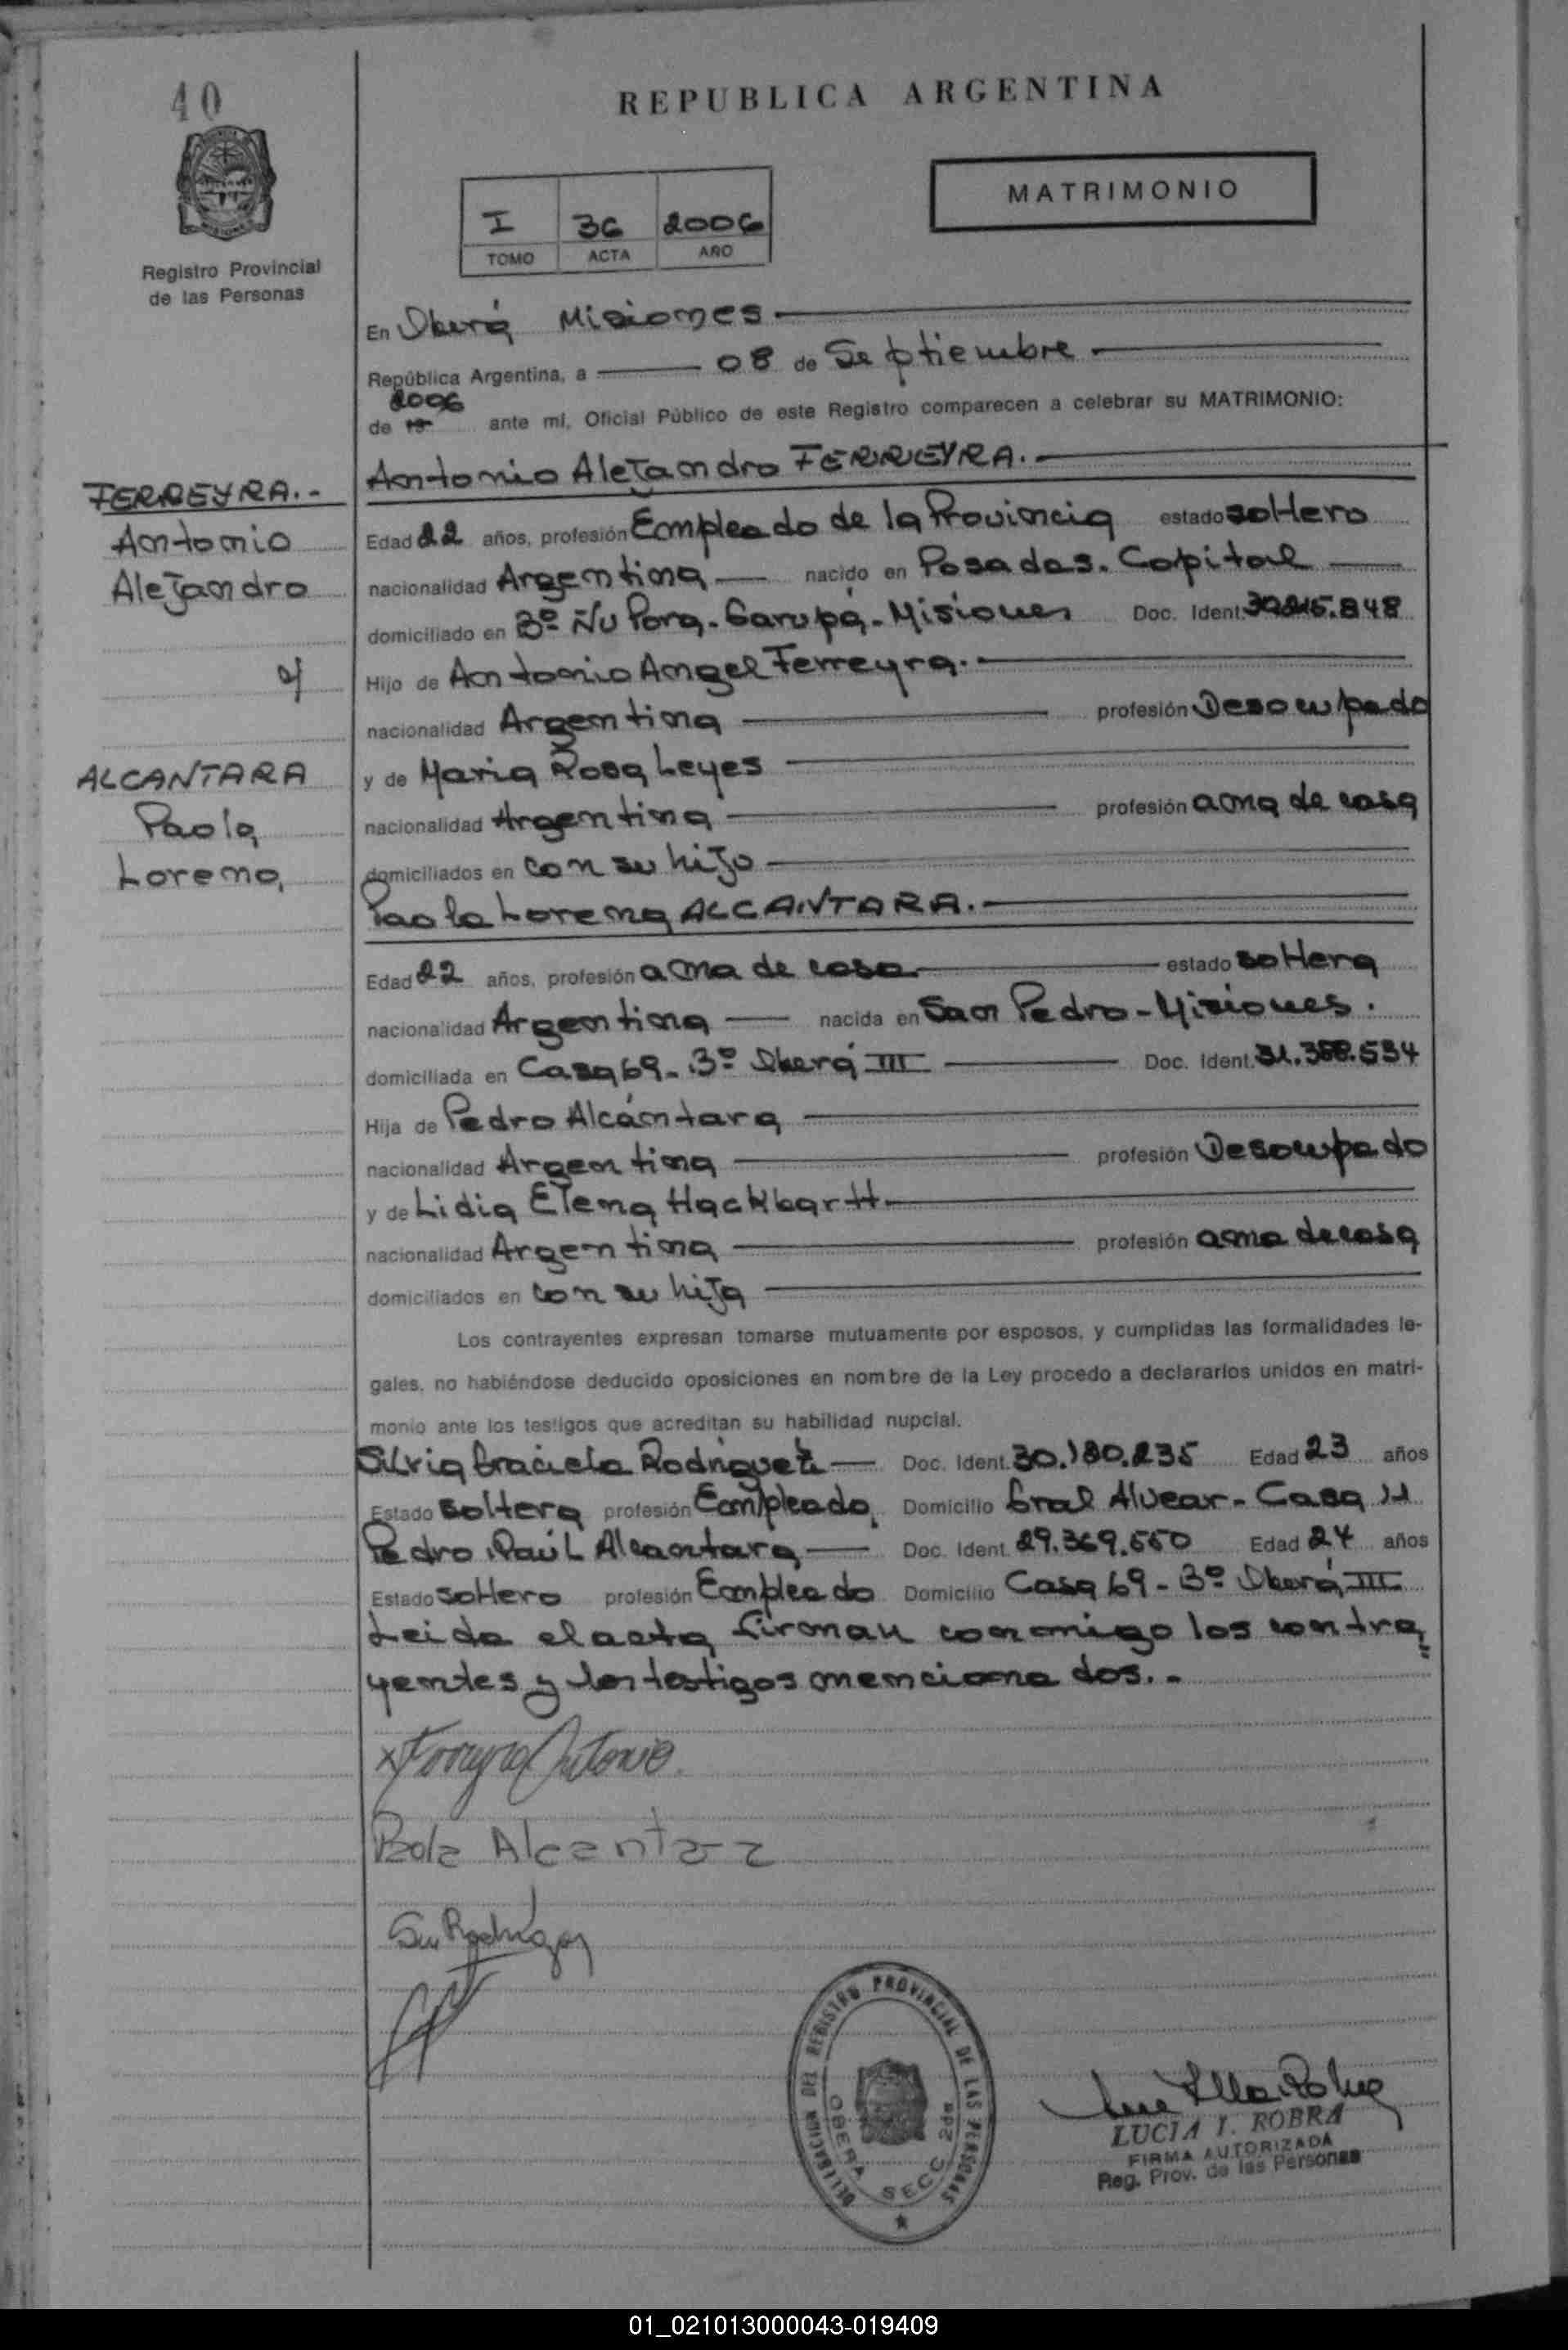 40
REPUBLICA ARGENTINA
MATRIMONIO
I 36 2006
TOMO ACTA AÑO
Registro Provincial
de las Personas
En Oberá Misiones
República Argentina, a 08 de Septiembre
2006
de 19 ante mí, Oficial Público de este Registro comparecen a celebrar su MATRIMONIO:
Antonio Alejandro FERREYRA.
FERREYRA.-
Antonio
Alejandro
y
ALCANTARA
Paola
Lorena
Edad 22 años, profesión Empleado de la Provincia estado soltero
nacionalidad Argentina nacido en Posadas. Capital
domiciliado en Bº Ñu Pora. Garupá. Misiones Doc. Ident.
Hijo de Antonio Angel Ferreyra.
nacionalidad Argentina profesión Desocupado
y de Maria Rosa Leyes
nacionalidad Argentina profesión ama de casa
domiciliados en con su hijo
Paola Lorena ALCANTARA.
Edad 22 años, profesión ama de casa estado soltera
nacionalidad Argentina nacida en San Pedro - Misiones.
domiciliada en Casa 69. Bº Oberá III Doc. Ident.
Hija de Pedro Alcántara
nacionalidad Argentina profesión Desocupado
y de Lidia Elena Hackbartt
nacionalidad Argentina profesión ama de casa
domiciliados en con su hija
Los contrayentes expresan tomarse mutuamente por esposos, y cumplidas las formalidades le-
gales, no habiéndose deducido oposiciones en nombre de la Ley procedo a declararlos unidos en matri-
monio ante los testigos que acreditan su habilidad nupcial.
Silvia Graciela Rodriguez Doc. Ident. 30.180.235 Edad 23 años
Estado soltera profesión Empleada Domicilio Gral Alvear - Casa
Pedro Raúl Alcantara Doc. Ident. 29.369.550 Edad 24 años
Estado soltero profesión Empleado Domicilio Casa 69 - Bº Oberá III
Leida el acta firman conmigo los contra
yentes y los testigos mencionados.-
x Ferreyra Antonio.
Paola Alcantara
Rodriguez
DELEGACION DEL REGISTRO PROVINCIAL DE LAS PERSONAS
OBERA SECC. 2da
LUCIA I. ROBRA
FIRMA AUTORIZADA
Reg. Prov. de las Personas
01_021013000043-019409